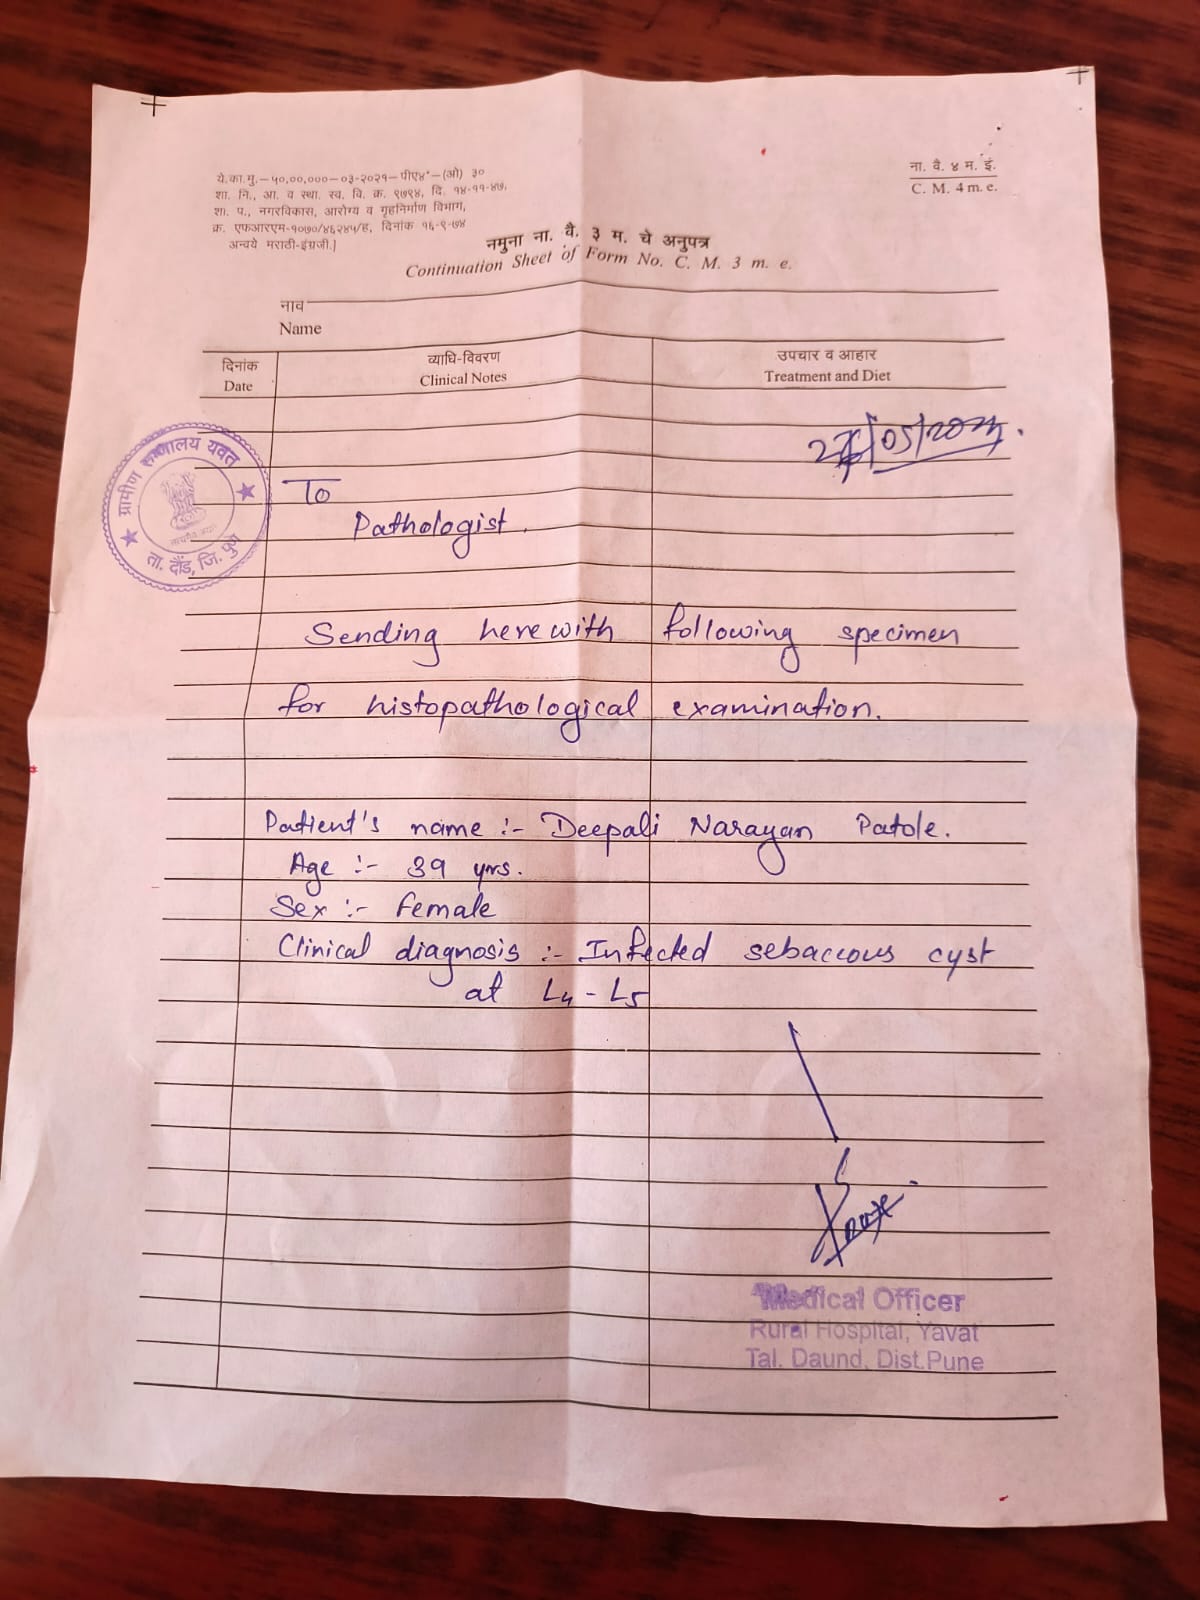 ये.का.मु.—५०,००,०००—०३-२०२१—पीए४*—(ओ) ३०
शा. नि., आ. व स्था. स्व. वि. क्र. ९७९४, दि. १४-११-४७,
शा. प., नगरविकास, आरोग्य व गृहनिर्माण विभाग,
क्र. एफआरएम-१०७०/४६२४५/ह, दिनांक १६-९-७४
अन्वये मराठी-इंग्रजी.]
ना. वै. ४ म. इं.
C. M. 4 m. e.
नमुना ना. वै. ३ म. चे अनुपत्र
Continuation Sheet of Form No. C. M. 3 m. e.
नाव
Name
दिनांक व्याधि-विवरण उपचार व आहार
Date Clinical Notes Treatment and Diet
/05/
ग्रामीण रुग्णालय यवत
ता. दौंड, जि. पुणे
To
Pathologist.
Sending herewith following specimen
for histopathological examination.
Patient's name :- Deepali Narayan Patole.
Age :- 39 yrs.
Sex :- female
Clinical diagnosis :- Infected sebaccous cyst
at L4 - L5
Medical Officer
Rural Hospital, Yavat
Tal. Daund, Dist.Pune